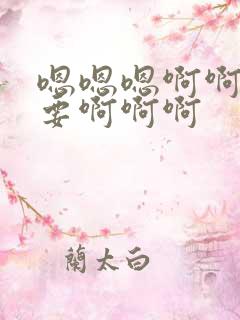 嗯嗯嗯啊啊
要啊啊啊
蘭太白